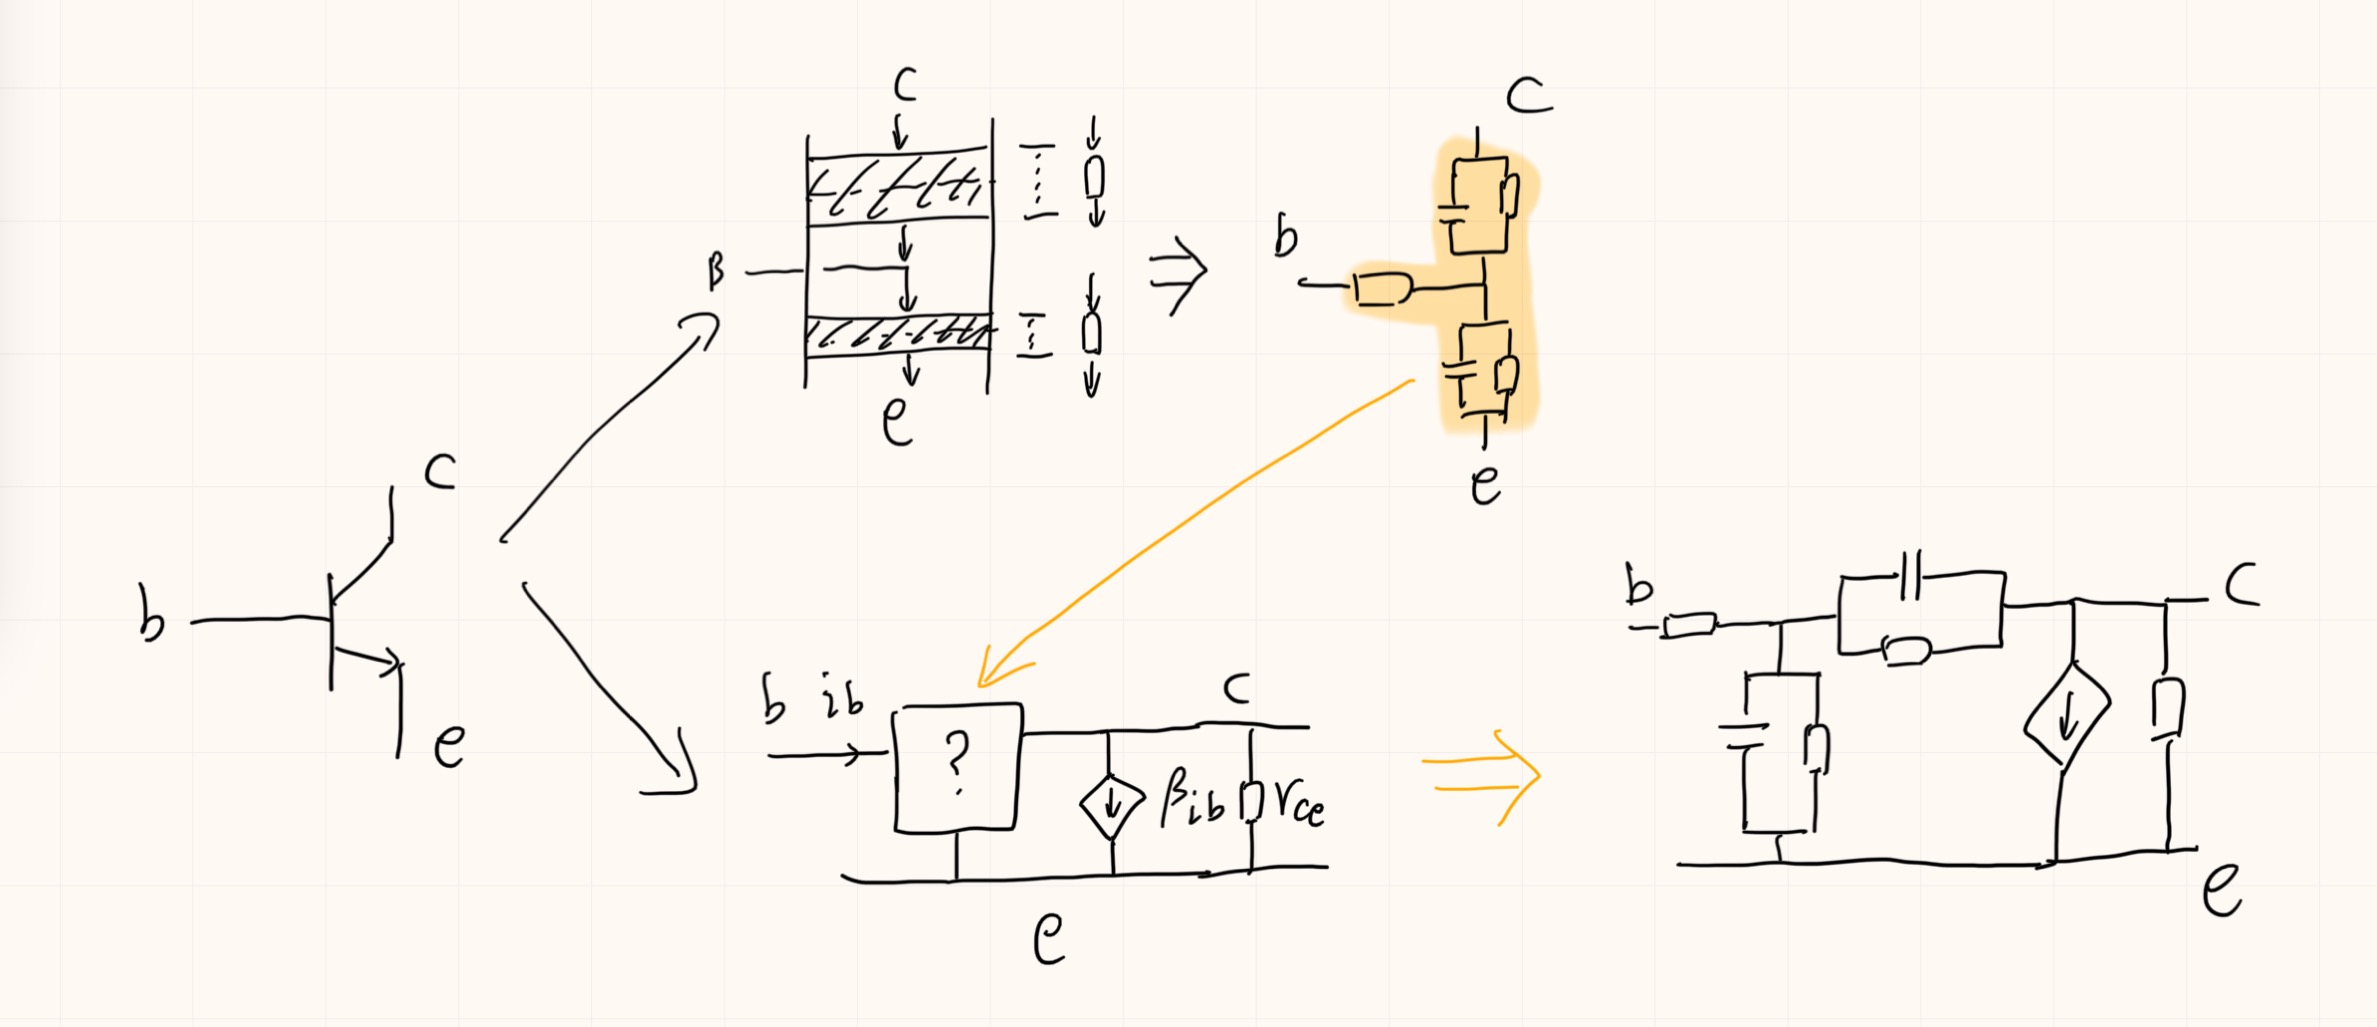 C
B
e
C
b
e
C
b
e
b ib
?
C
βib
rce
e
b
C
e